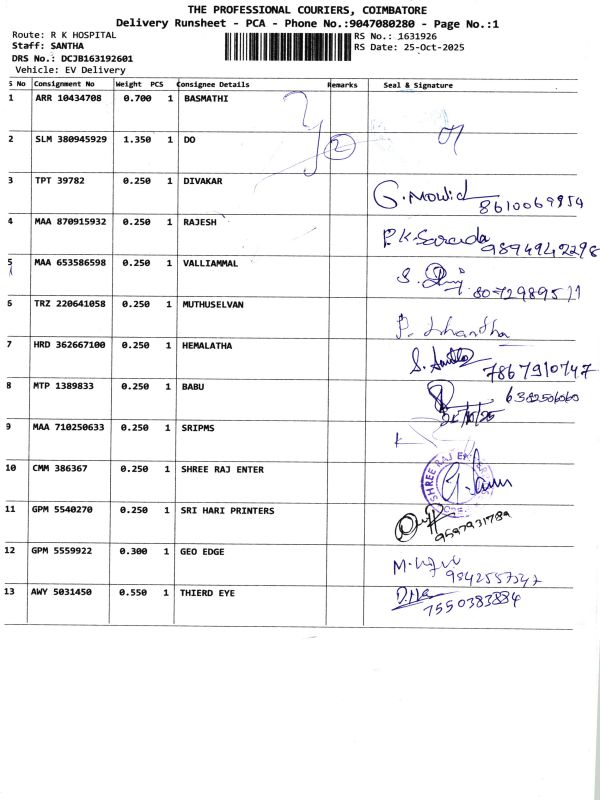 THE PROFESSIONAL COURIERS, COIMBATORE
Delivery Runsheet - PCA - Phone No.:9047080280 - Page No.:1
Route: R K HOSPITAL
Staff: SANTHA
DRS No.: DCJB163192601
Vehicle: EV Delivery
RS No.: 1631926
RS Date: 25-Oct-2025
S No Consignment No Weight PCS Consignee Details Remarks Seal & Signature
1 ARR 10434708 0.700 1 BASMATHI
2 SLM 380945929 1.350 1 DO 2
3 TPT 39782 0.250 1 DIVAKAR G. Mowid 8610069954
4 MAA 870915932 0.250 1 RAJESH 9894942298
5 MAA 653586598 0.250 1 VALLIAMMAL S. 8072989511
6 TRZ 220641058 0.250 1 MUTHUSELVAN
7 HRD 362667100 0.250 1 HEMALATHA 7867910747
8 MTP 1389833 0.250 1 BABU 6382506060
25/10/25
9 MAA 710250633 0.250 1 SRIPMS
10 CMM 386367 0.250 1 SHREE RAJ ENTER SHREE RAJ
11 GPM 5540270 0.250 1 SRI HARI PRINTERS 9597931789
12 GPM 5559922 0.300 1 GEO EDGE
13 AWY 5031450 0.550 1 THIERD EYE 7550383884